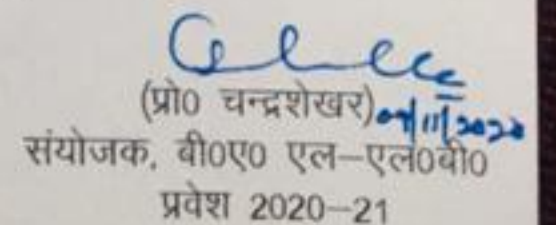 (प्रो0 चन्द्रशेखर)
संयोजक, बी0ए0 एल–एल0बी0
प्रवेश 2020–21